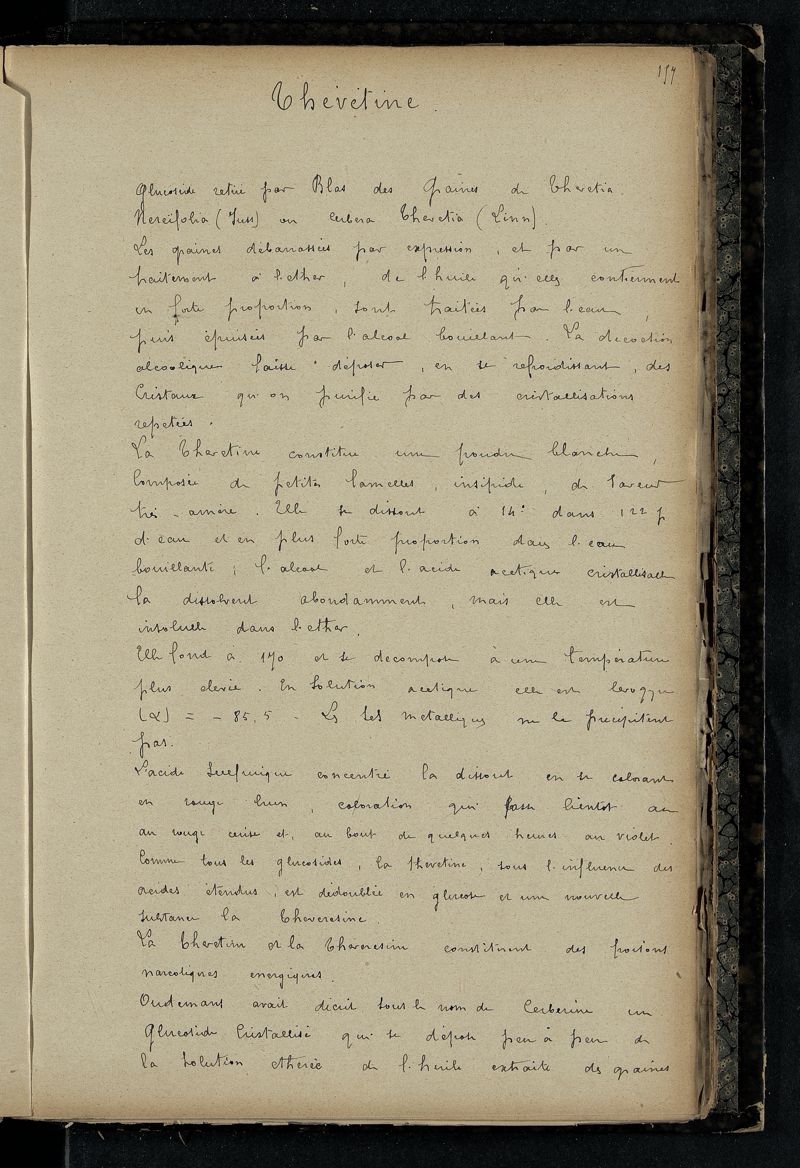 157
Thévétine.
Glucoside retiré par Blas des Graines de Thevetia
Nereifolia (Juss) ou Cerbera Thevetia (Linn).
Les graines débarrassées par expression, et par un
traitement à l'ether, de l'huile qu'elles contiennent
en forte proportion, sont traitées par l'eau,
puis épuisées par l'alcool bouillant. La decoction
alcoolique laisse déposer, en se refroidissant, des
Cristaux qu'on purifie par des cristallisations
repetées.
La Thevetine constitue une poudre blanche,
Composée de petites lamelles, insipide, de saveur
très-amère. Elle se dissout à 14° dans 122 p
d'eau et en plus forte proportion dans l'eau
bouillante; l'alcool et l'acide acetique cristallisable
la dissolvent abondamment, mais elle est
insoluble dans l'ether.
Elle fond à 170 et se decompose à une température
plus elevée. En solution acetique elle est levogyre
(α) = - 85,5 - Les sels metalliques ne la precipitent
pas.
L'acide sulfurique concentré la dissout en se colorant
en rouge brun, coloration qui passe bientot au
au rouge cerise et, au bout de quelques heures au violet.
Comme tous les glucosides, la thevetine, sous l'influence des
acides étendus, est dédoublée en glucose et une nouvelle
substance la Theveresine.
La Thevetine et la Theveresine constituent des poisons
narcotiques energiques.
Oudemans avait décrit sous le nom de Cerberine un
Glucoside Cristallisé qui se dépose peu à peu de
la solution etherée de l'huile extraite des graines